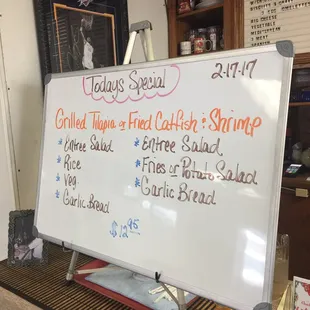 Todays Special
2-17-17
Grilled Tilapia or Fried Catfish & Shrimp
* Entree Salad
* Rice
* Veg
* Garlic Bread
* Entree Salad
* Fries or Potato Salad
* Garlic Bread
$12.95